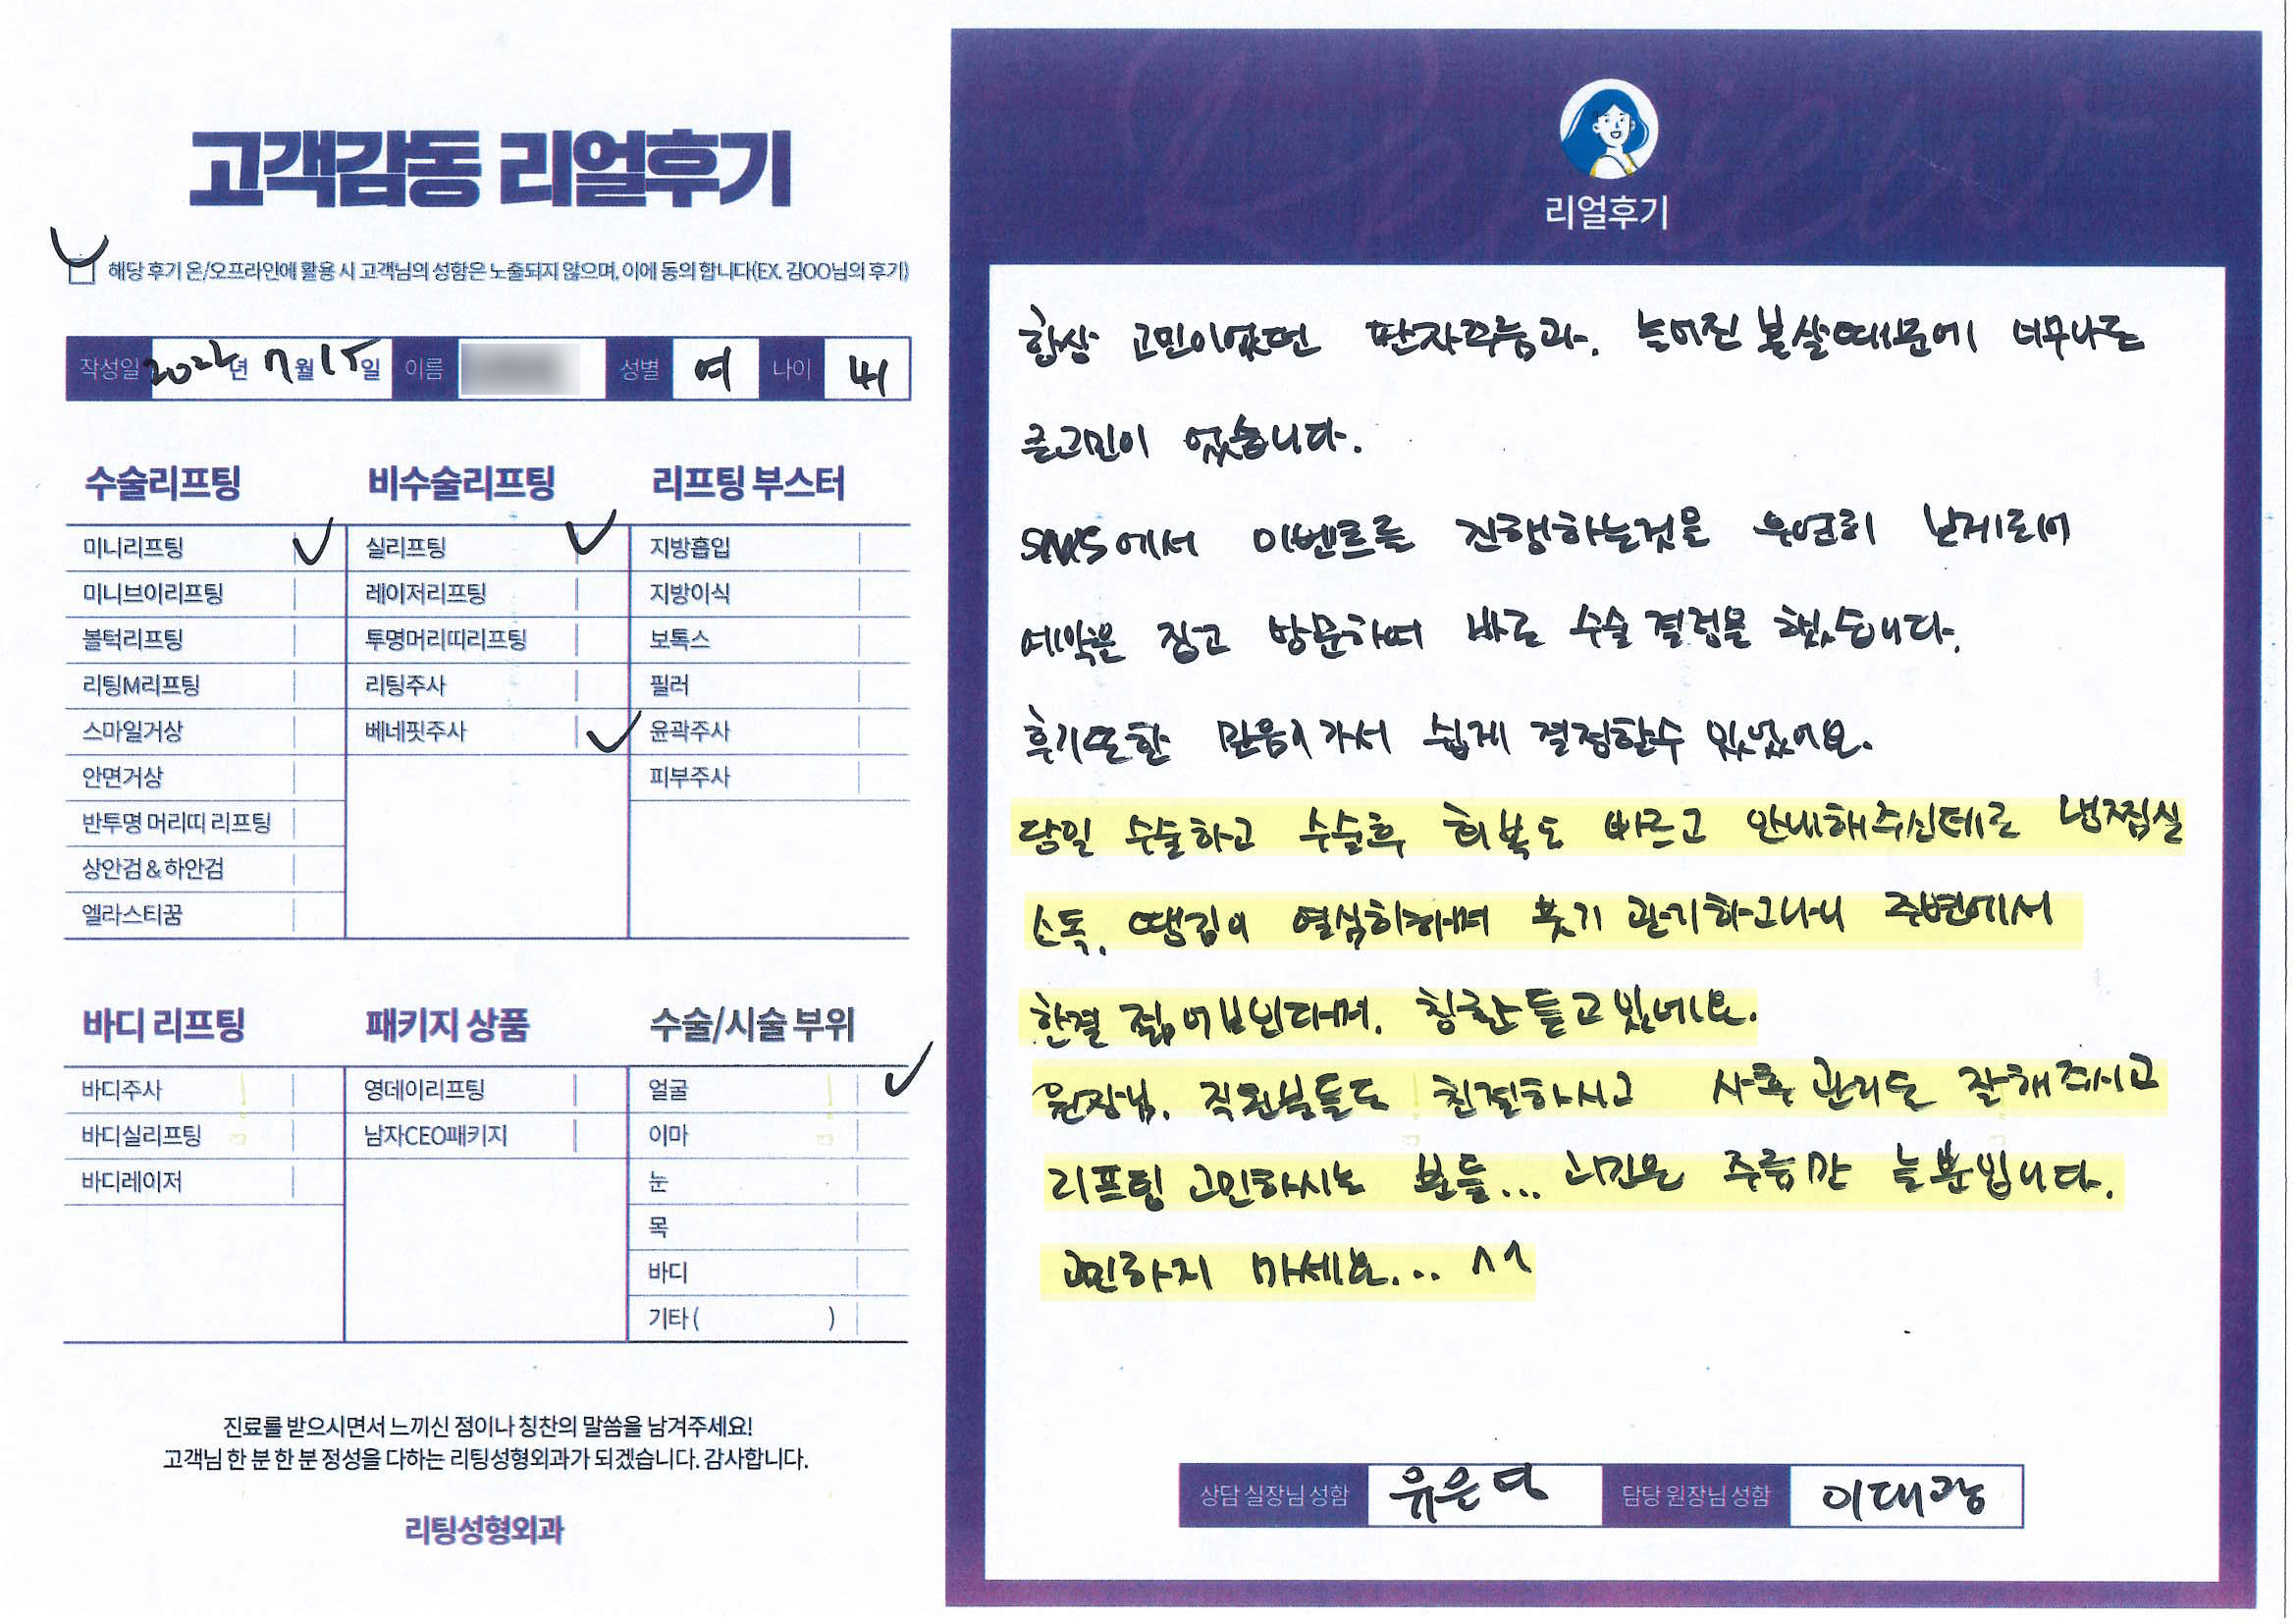 고객감동 리얼후기
해당 후기 온/오프라인에 활용 시 고객님의 성함은 노출되지 않으며, 이에 동의 합니다(EX. 김OO님의 후기)
작성일 2022년 7월 15일 이름 성별 여 나이 41
수술리프팅 비수술리프팅 리프팅 부스터
미니리프팅 실리프팅 지방흡입
미니브이리프팅 레이저리프팅 지방이식
볼턱리프팅 투명머리띠리프팅 보톡스
리팅M리프팅 리팅주사 필러
스마일거상 베네핏주사 윤곽주사
안면거상 피부주사
반투명 머리띠 리프팅
상안검 & 하안검
엘라스티꿈
바디 리프팅 패키지 상품 수술/시술 부위
바디주사 영데이리프팅 얼굴
바디실리프팅 남자CEO패키지 이마
바디레이저 눈
목
바디
기타 ( )
진료를 받으시면서 느끼신 점이나 칭찬의 말씀을 남겨주세요!
고객님 한 분 한 분 정성을 다하는 리팅성형외과가 되겠습니다. 감사합니다.
리팅성형외과
리얼후기
항상 고민이였던 팔자주름과. 늘어진 볼살때문에 너무나도
큰고민이 었습니다.
SNS에서 이벤트를 진행하는것을 우연히 보게되어
예약을 잡고 방문하여 바로 수술 결정을 했습니다.
후기또한 믿음이가서 쉽게 결정할수 있었어요.
당일 수술하고 수술후 회복도 빠르고 안내해주신데로 냉찜질
소독, 땡김이 열심히하며 붓기 관리하고나니 주변에서
한결 젊어보인다며. 칭찬 듣고있네요.
원장님. 직원분들도 친절하시고 사후 관리도 잘해주시고
리프팅 고민하시는 분들... 고민은 주름만 늘뿐입니다.
고민하지 마세요... ^^
상담 실장님 성함 유은영 담당 원장님 성함 이대광